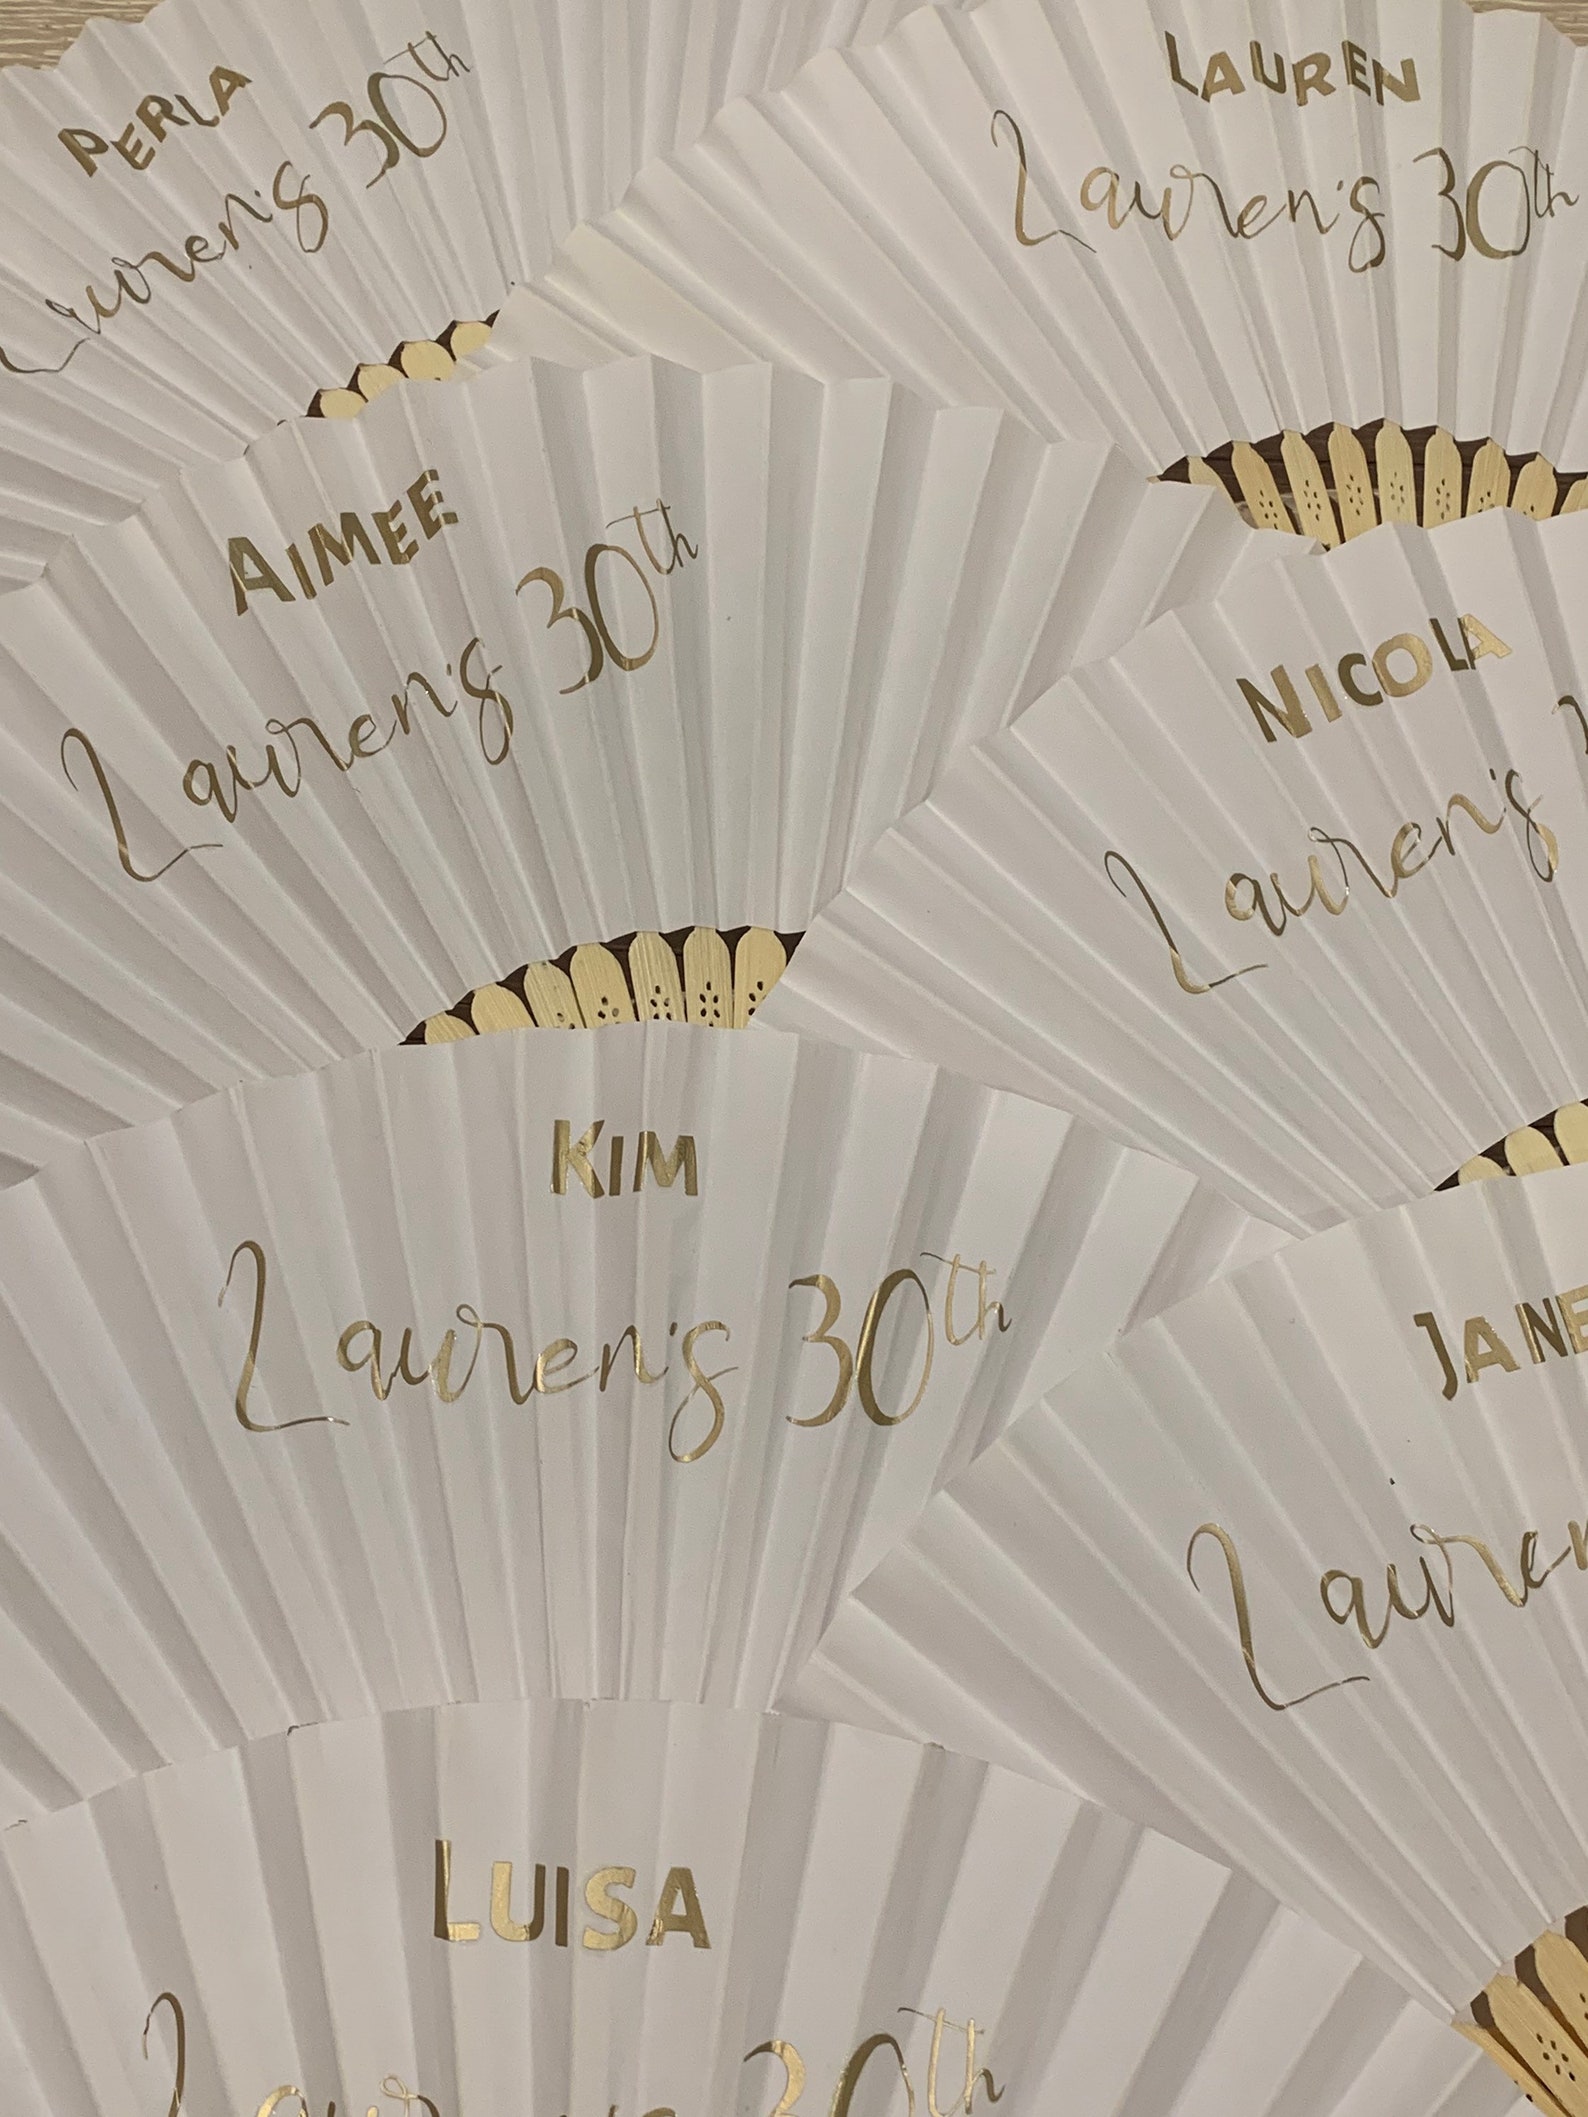 PERLA
Lauren's 30th
LAUREN
Lauren's 30th
AIMEE
Lauren's 30th
NICOLA
Lauren's
KIM
Lauren's 30th
JANE
Lauren
LUISA
Lauren's 30th